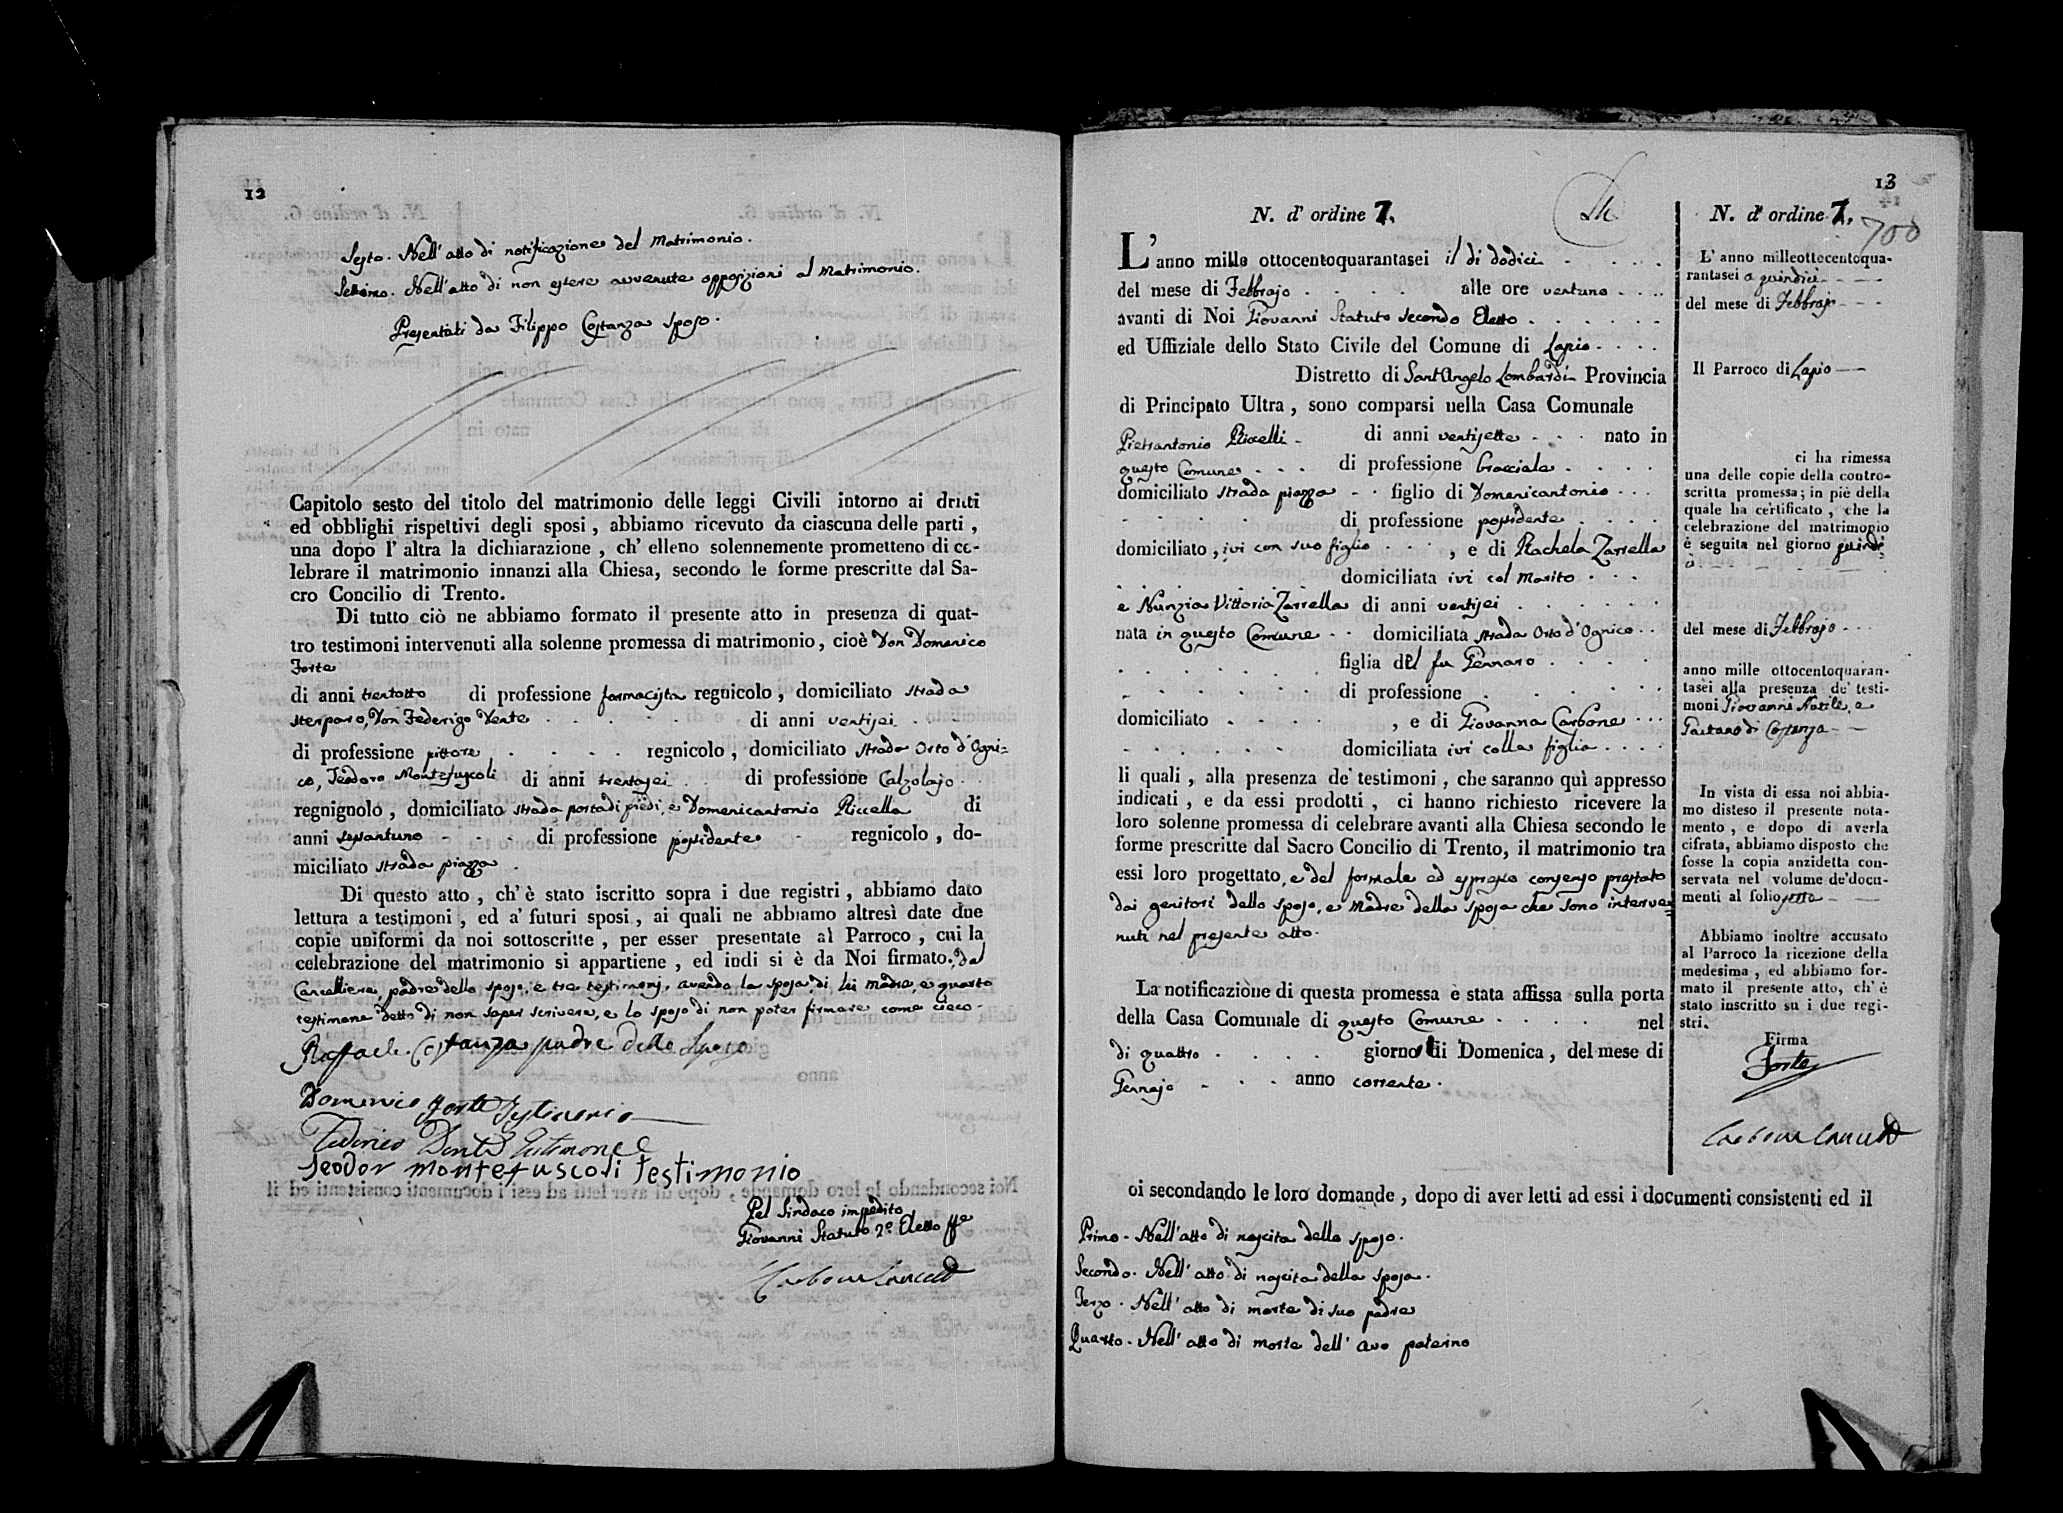 12
Sesto. Nell' atto di notificazione del Matrimonio.
Settimo. Nell' atto di non essere avvenute opposizioni al Matrimonio.
Presentati da Filippo Costanza sposo.
Capitolo sesto del titolo del matrimonio delle leggi Civili intorno ai dritti
ed obblighi rispettivi degli sposi, abbiamo ricevuto da ciascuna delle parti,
una dopo l' altra la dichiarazione, ch' elleno solennemente promettono di ce-
lebrare il matrimonio innanzi alla Chiesa, secondo le forme prescritte dal Sa-
cro Concilio di Trento.
Di tutto ciò ne abbiamo formato il presente atto in presenza di quat-
tro testimoni intervenuti alla solenne promessa di matrimonio, cioè Don Domenico
Forte
di anni trentotto di professione farmacista regnicolo, domiciliato strada
Sterparo, Don Federigo Dente di anni ventisei
di professione pittore regnicolo, domiciliato strada Orto d'Ogni=
co, Teodoro Montefuscoli di anni trentasei di professione Calzolajo
regnignolo, domiciliato strada porta di piedi, e Domenicantonio Riccella di
anni sessantuno di professione possidente regnicolo, do-
miciliato strada piazza
Di questo atto, ch' è stato iscritto sopra i due registri, abbiamo dato
lettura a testimoni, ed a' futuri sposi, ai quali ne abbiamo altresì date due
copie uniformi da noi sottoscritte, per esser presentate al Parroco, cui la
celebrazione del matrimonio si appartiene, ed indi si è da Noi firmato, dal
Cancelliere, padre dello sposo, e tre testimonj, avendo la sposa, di lei madre, e quarto
testimone detto di non saper scrivere, e lo sposo di non poter firmare come cieco.
Raffaele Costanza padre dello Sposo
Domenico Forte Testimonio
Federico Dente Testimone
Teodor montefuscoli testimonio
Pel Sindaco impedito
Giovanni Statuto 2º Eletto ff
Carbone Cancell
13
N. d' ordine 7.
L' anno mille ottocentoquarantasei il di dodici
del mese di Febbrajo alle ore ventuno
avanti di Noi Giovanni Statuto Secondo Eletto
ed Uffiziale dello Stato Civile del Comune di Lapio
Distretto di Sant'Angelo Lombardi Provincia
di Principato Ultra, sono comparsi nella Casa Comunale
Pietrantonio Riccelli di anni ventisette nato in
questo Comune di professione bracciale
domiciliato strada piazza figlio di Domenicantonio
di professione possidente
domiciliato, ivi con suo figlio, e di Rachela Zarrella
domiciliata ivi col marito
e Nunzia Vittoria Zarrella di anni ventisei
nata in questo Comune domiciliata strada Orto d'Ognico
figlia del fu Gennaro
di professione
domiciliato, e di Giovanna Carbone
domiciliata ivi colla figlia
li quali, alla presenza de' testimoni, che saranno quì appresso
indicati, e da essi prodotti, ci hanno richiesto ricevere la
loro solenne promessa di celebrare avanti alla Chiesa secondo le
forme prescritte dal Sacro Concilio di Trento, il matrimonio tra
essi loro progettato, e del formale ed espresso consenso prestato
dai genitori dello sposo, e Madre della sposa che sono interve=
nuti nel presente atto.
La notificazione di questa promessa è stata affissa sulla porta
della Casa Comunale di questo Comune nel
di quattro giorno di Domenica, del mese di
Gennajo anno corrente.
N. d' ordine 7.
700
L' anno milleottocentoqua-
rantasei a quindici
del mese di Febbrajo
Il Parroco di Lapio
ci ha rimessa
una delle copie della contro-
scritta promessa; in piè della
quale ha certificato, che la
celebrazione del matrimonio
è seguita nel giorno quindi=
ci
del mese di Febbrajo
anno mille ottocentoquaran-
tasei alla presenza de' testi-
moni Giovanni Natile, e
Gaetano di Costanza
In vista di essa noi abbia-
mo disteso il presente nota-
mento, e dopo di averla
cifrata, abbiamo disposto che
fosse la copia anzidetta con-
servata nel volume de' docu-
menti al folio sette
Abbiamo inoltre accusato
al Parroco la ricezione della
medesima, ed abbiamo for-
mato il presente atto, ch' è
stato inscritto su i due regi-
stri.
Firma
Forte
Carbone Cancell
oi secondando le loro domande, dopo di aver letti ad essi i documenti consistenti ed il
Primo. Nell' atto di nascita dello sposo.
Secondo. Nell' atto di nascita della sposa.
Terzo. Nell' atto di morte di suo padre
Quarto. Nell' atto di morte dell' avo paterno